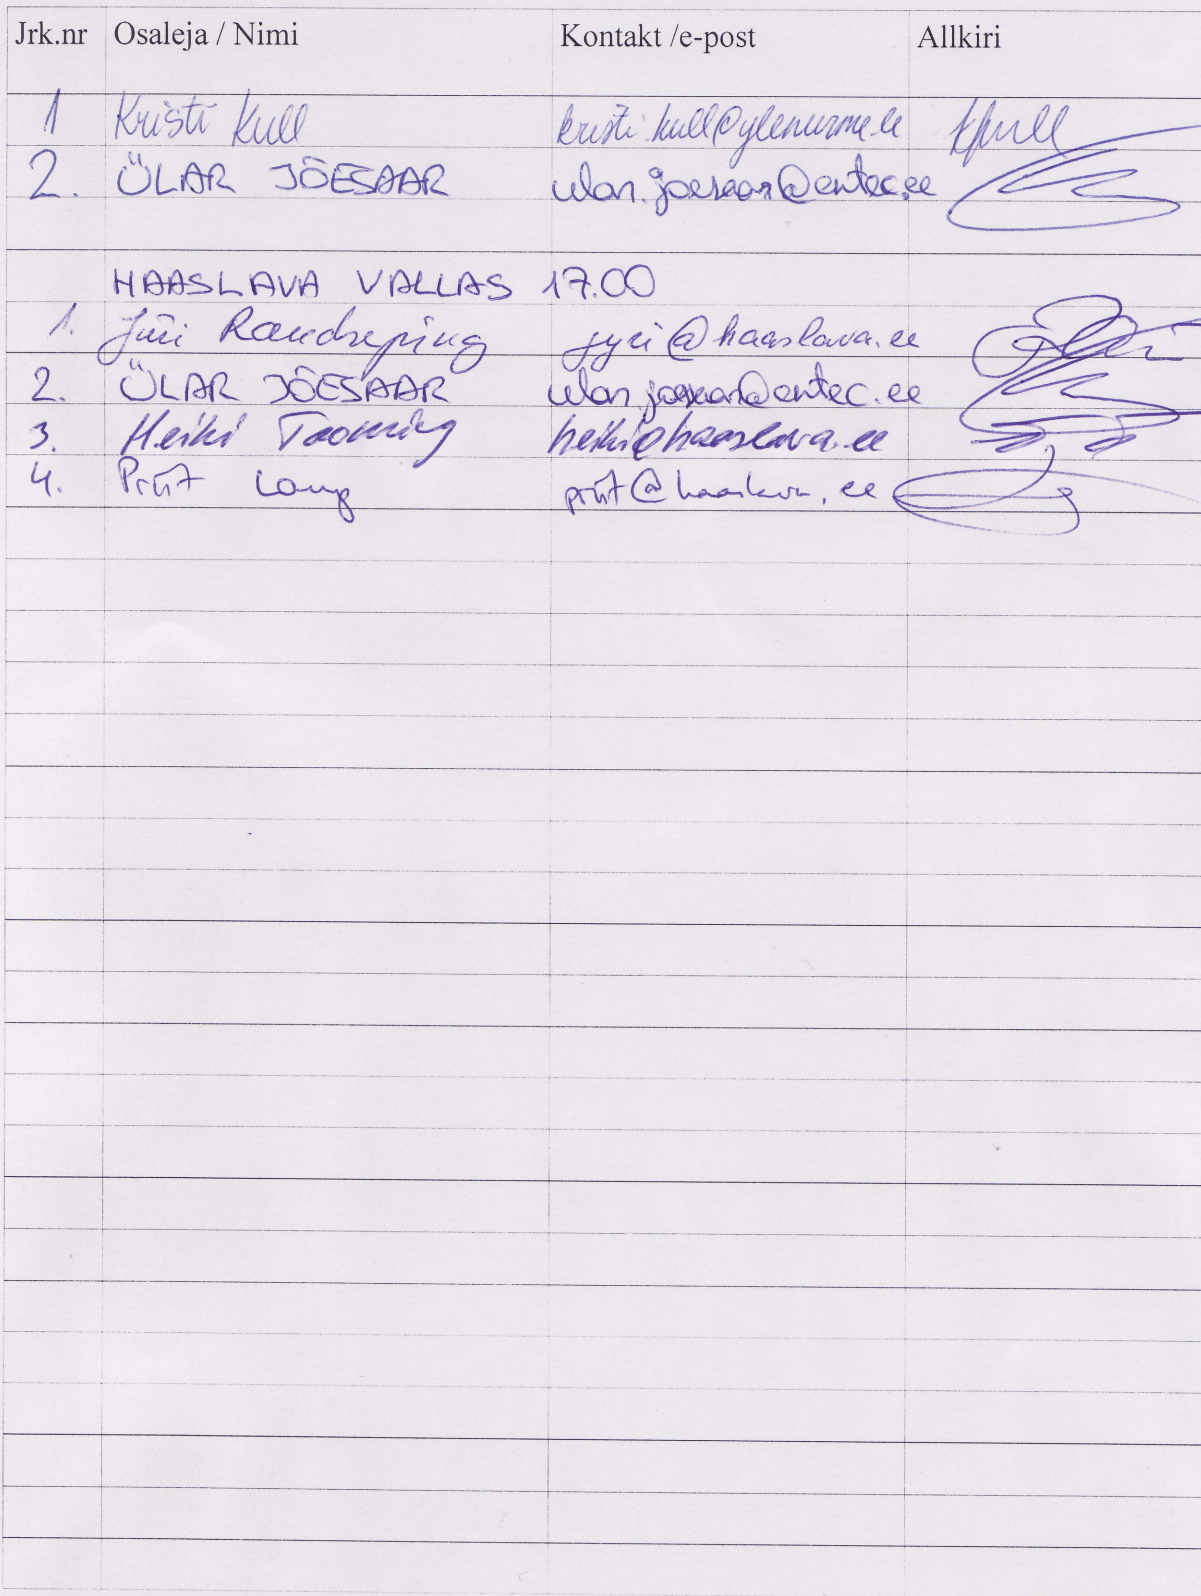 Jrk.nr Osaleja / Nimi Kontakt /e-post Allkiri
1 Kristi Kull kristi.kull@ylenurme.ee
2. ÜLAR JÕESAAR ular.joesaar@entec.ee
HAASLAVA VALLAS 17.00
1. Jüri Raudsepping jyri@haaslava.ee
2. ÜLAR JÕESAAR ular.joesaar@entec.ee
3. Heiki Tooming heiki@haaslava.ee
4. Priit Lomp priit@haaslava.ee